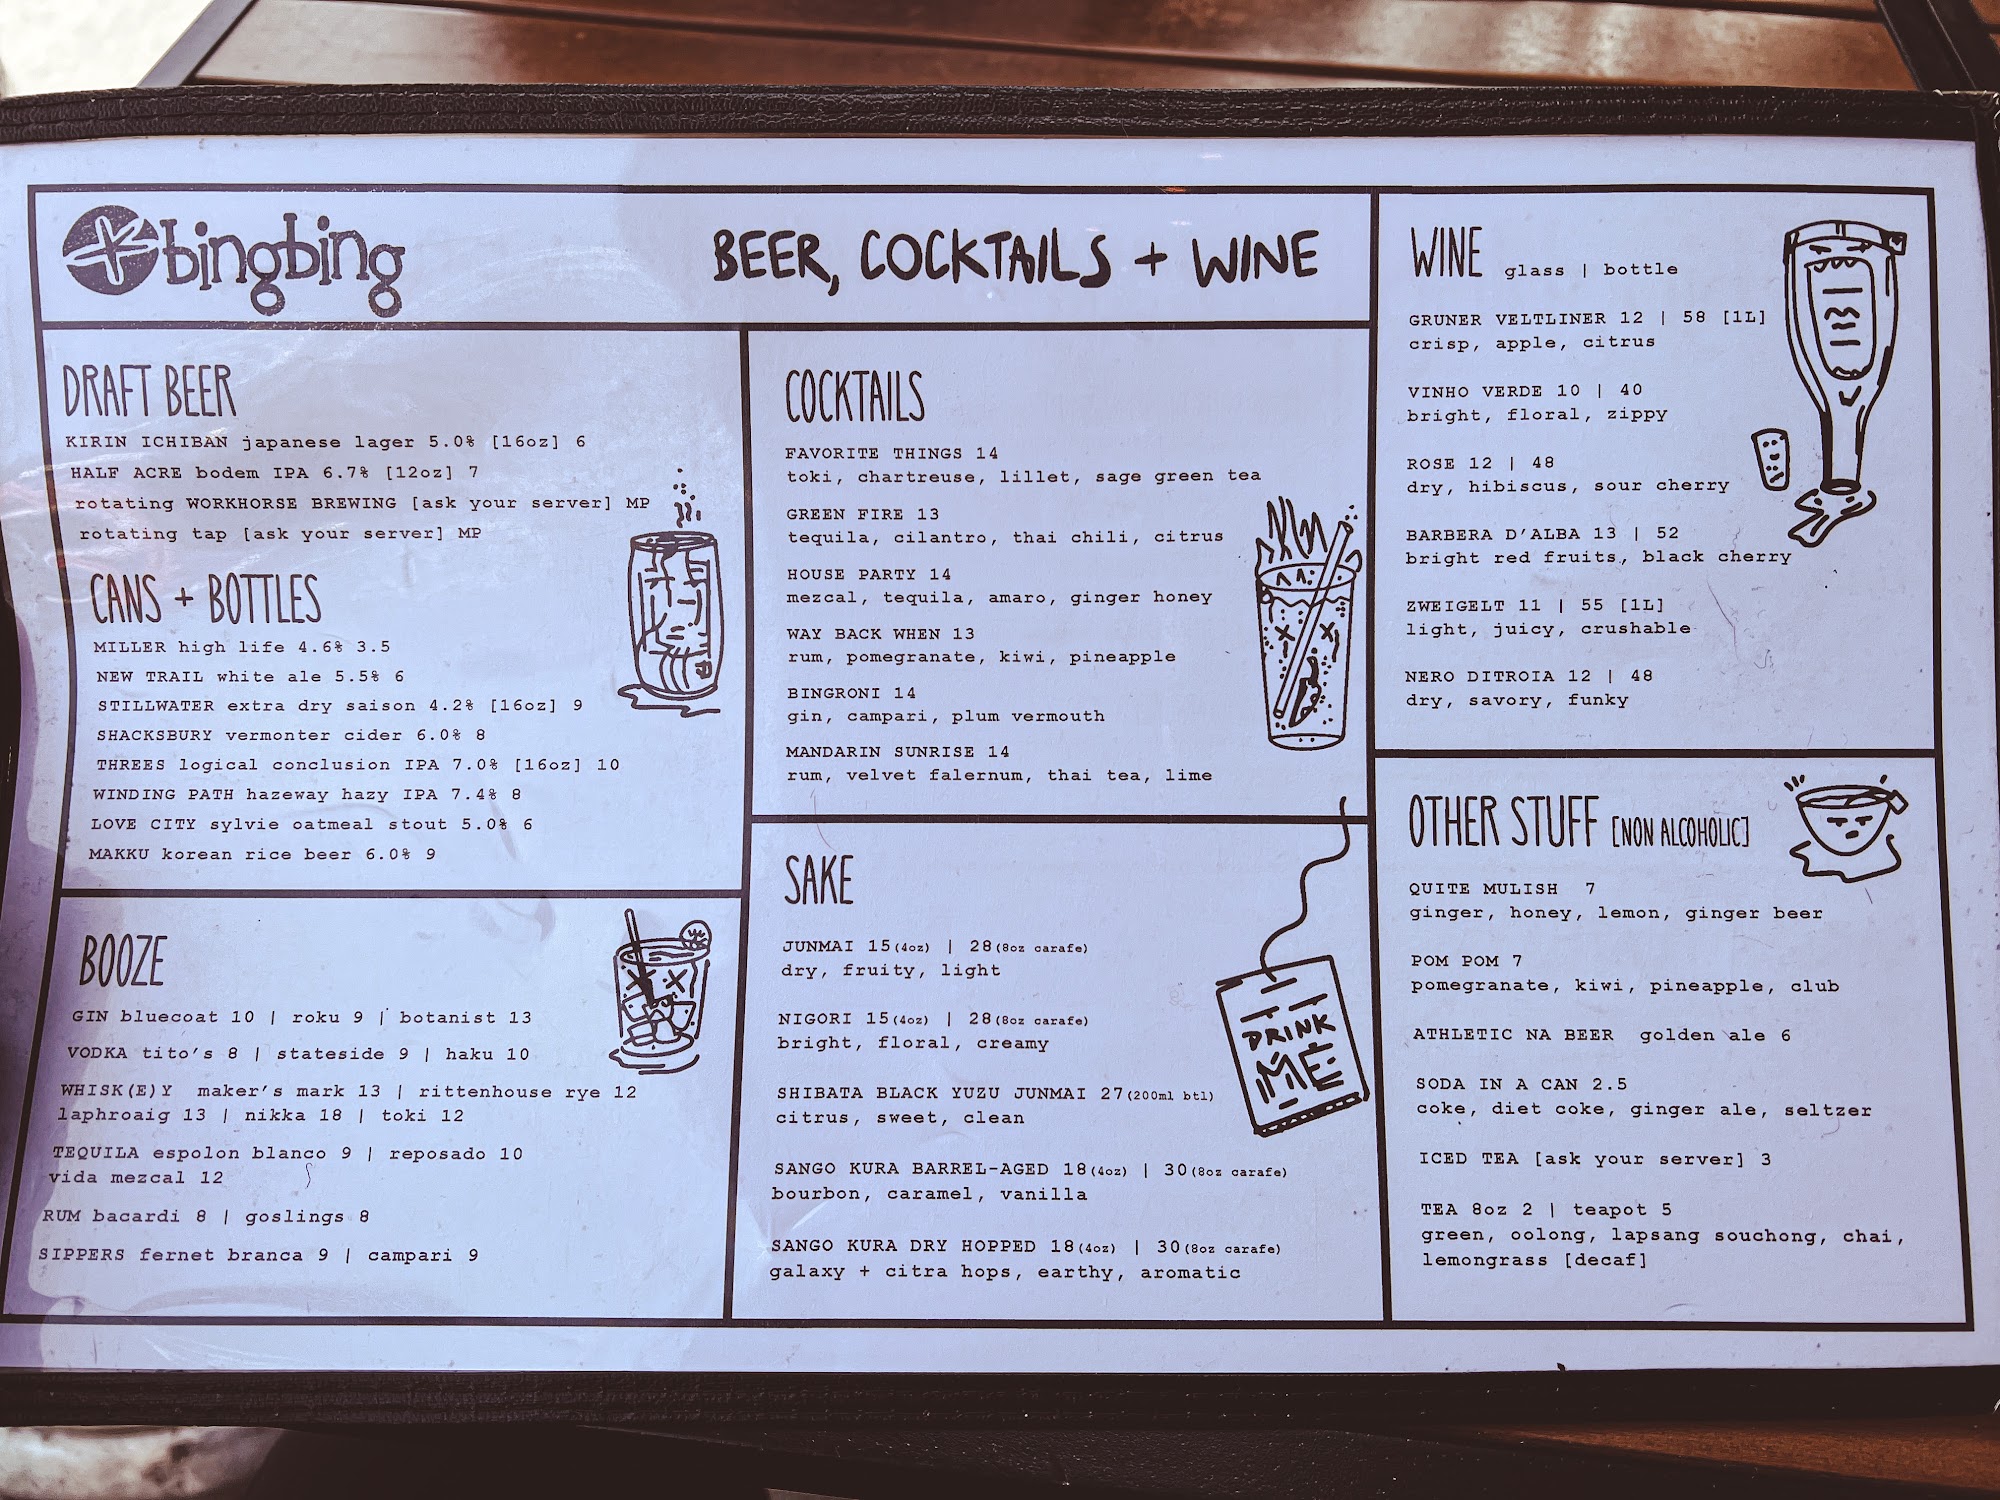 bingbing
BEER, COCKTAILS + WINE
DRAFT BEER
KIRIN ICHIBAN japanese lager 5.0% [16oz] 6
HALF ACRE bodem IPA 6.7% [12oz] 7
rotating WORKHORSE BREWING [ask your server] MP
rotating tap [ask your server] MP
CANS + BOTTLES
MILLER high life 4.6% 3.5
NEW TRAIL white ale 5.5% 6
STILLWATER extra dry saison 4.2% [16oz] 9
SHACKSBURY vermonter cider 6.0% 8
THREES logical conclusion IPA 7.0% [16oz] 10
WINDING PATH hazeway hazy IPA 7.4% 8
LOVE CITY sylvie oatmeal stout 5.0% 6
MAKKU korean rice beer 6.0% 9
BOOZE
GIN bluecoat 10 | roku 9 | botanist 13
VODKA tito's 8 | stateside 9 | haku 10
WHISK(E)Y maker's mark 13 | rittenhouse rye 12
laphroaig 13 | nikka 18 | toki 12
TEQUILA espolon blanco 9 | reposado 10
vida mezcal 12
RUM bacardi 8 | goslings 8
SIPPERS fernet branca 9 | campari 9
COCKTAILS
FAVORITE THINGS 14
toki, chartreuse, lillet, sage green tea
GREEN FIRE 13
tequila, cilantro, thai chili, citrus
HOUSE PARTY 14
mezcal, tequila, amaro, ginger honey
WAY BACK WHEN 13
rum, pomegranate, kiwi, pineapple
BINGRONI 14
gin, campari, plum vermouth
MANDARIN SUNRISE 14
rum, velvet falernum, thai tea, lime
SAKE
JUNMAI 15(4oz) | 28(8oz carafe)
dry, fruity, light
NIGORI 15(4oz) | 28(8oz carafe)
bright, floral, creamy
SHIBATA BLACK YUZU JUNMAI 27(200ml btl)
citrus, sweet, clean
SANGO KURA BARREL-AGED 18(4oz) | 30(8oz carafe)
bourbon, caramel, vanilla
SANGO KURA DRY HOPPED 18(4oz) | 30(8oz carafe)
galaxy + citra hops, earthy, aromatic
DRINK
ME
WINE glass | bottle
GRUNER VELTLINER 12 | 58 [1L]
crisp, apple, citrus
VINHO VERDE 10 | 40
bright, floral, zippy
ROSE 12 | 48
dry, hibiscus, sour cherry
BARBERA D'ALBA 13 | 52
bright red fruits, black cherry
ZWEIGELT 11 | 55 [1L]
light, juicy, crushable
NERO DITROIA 12 | 48
dry, savory, funky
OTHER STUFF [NON ALCOHOLIC]
QUITE MULISH 7
ginger, honey, lemon, ginger beer
POM POM 7
pomegranate, kiwi, pineapple, club
ATHLETIC NA BEER golden ale 6
SODA IN A CAN 2.5
coke, diet coke, ginger ale, seltzer
ICED TEA [ask your server] 3
TEA 8oz 2 | teapot 5
green, oolong, lapsang souchong, chai,
lemongrass [decaf]